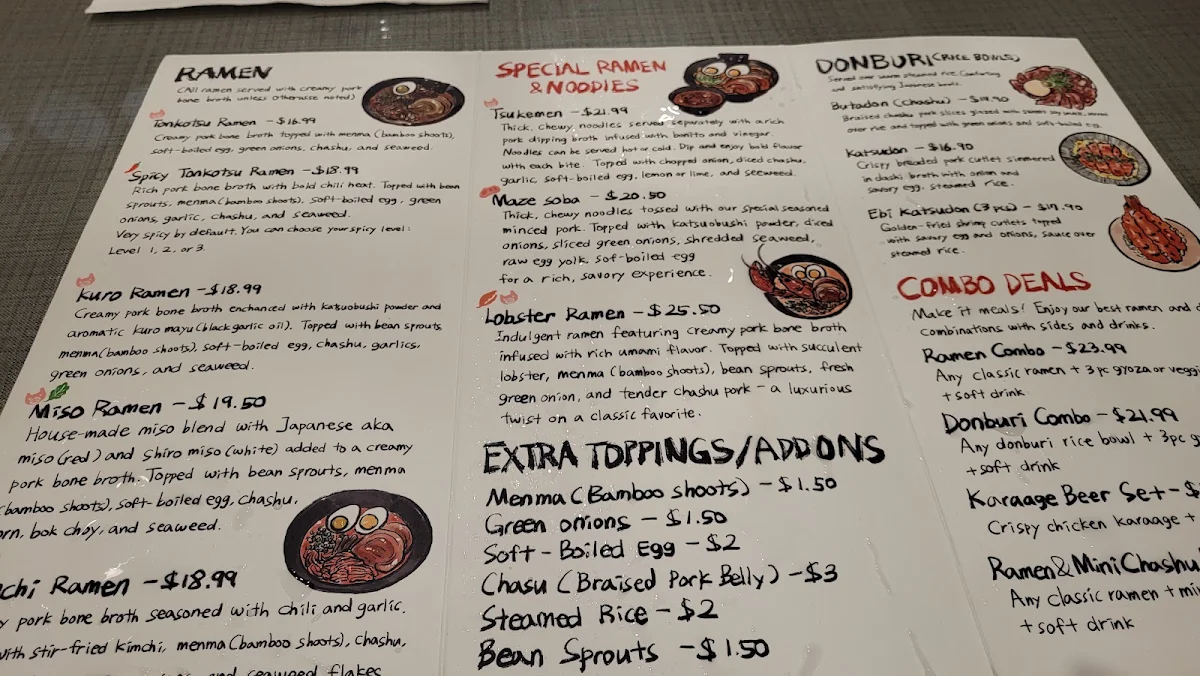 RAMEN
(All ramen served with creamy pork
bone broth unless otherwisse noted)
Tonkotsu Ramen - $16.99
Creamy pork bone broth topped with menma (bamboo shoots),
soft-boiled egg, green onions, chashu, and seaweed.
Spicy Tonkotsu Ramen - $18.99
Rich pork bone broth with bold chili heat. Topped with bean
sprouts, menma (bamboo shoots), soft-boiled egg, green
onions, garlic, chashu, and seaweed.
Very spicy by default. You can choose your spicy level:
Level 1, 2, or 3.
Kuro Ramen - $18.99
Creamy pork bone broth enchanced with katsuobushi powder and
aromatic kuro mayu (black garlic oil). Topped with bean sprouts,
menma (bamboo shoots), soft-boiled egg, chashu, garlics,
green onions, and seaweed.
Miso Ramen - $19.50
House-made miso blend with Japanese aka
miso (red) and Shiro miso (white) added to a creamy
pork bone broth. Topped with bean sprouts, menma
(bamboo shoots), soft-boiled egg, chashu,
orn, bok choy, and seaweed.
chi Ramen - $18.99
y pork bone broth seasoned with chili and garlic.
with stir-fried kimchi, menma (bamboo shoots), chashu,
and seaweed flakes
SPECIAL RAMEN
& NOODLES
Tsukemen - $21.99
Thick, chewy noodles served separately with a rich
pork dipping broth infused with bonito and vinegar.
Noodles can be served hot or cold. Dip and enjoy bold flavor
with each bite. Topped with chopped onion, diced chashu,
garlic, soft-boiled egg, lemon or lime, and seeweed.
Maze soba - $20.50
Thick, chewy noodles tossed with our special seasoned
minced pork. Topped with katsuobushi powder, diced
onions, sliced green onions, shredded seaweed,
raw egg yolk, sof-boiled egg
for a rich, savory experience.
Lobster Ramen - $25.50
Indulgent ramen featuring creamy pork bone broth
infused with rich umami flavor. Topped with succulent
lobster, menma (bamboo shoots), bean sprouts, fresh
green onion, and tender chashu pork - a luxurious
twist on a classic favorite.
EXTRA TOPPINGS/ADDONS
Menma (Bamboo shoots) - $1.50
Green onions - $1.50
Soft-Boiled Egg - $2
Chasu (Braised Pork Belly) - $3
Steamed Rice - $2
Bean Sprouts - $1.50
DONBURI (RICE BOWLS)
Served over warm steamed rice. Comforting
and satisfying Japanese bowls.
Butadon (Chashu) - $19.90
Braised chashu pork slices glazed with
over rice and topped with green onions and soft-boiled egg.
Katsudon - $16.90
Crispy breaded pork cutlet simmered
in dashi broth with onion and
savory egg, steamed rice.
Ebi Katsudon (3 pcs) - $17.90
Golden-fried shrimp cutlets topped
with savory egg and onions, sauce over
steamed rice.
COMBO DEALS
Make it meals! Enjoy our best ramen and d
combinations with sides and drinks.
Ramen Combo - $23.99
Any classic ramen + 3 pc gyoza or veggi
+ soft drink
Donburi Combo - $21.99
Any donburi rice bowl + 3pc g
+ soft drink
Karaage Beer Set - $
Crispy chicken karaage +
Ramen & Mini Chashu
Any classic ramen + mi
+ soft drink